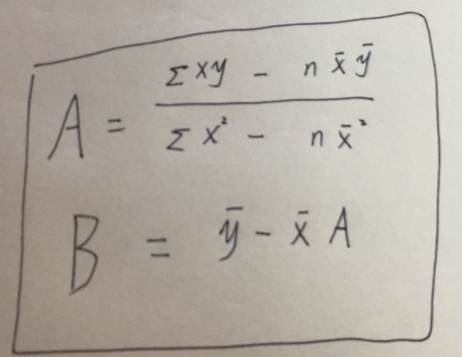 A = (Σxy - n x̄ȳ) / (Σx² - n x̄²)
B = ȳ - x̄ A